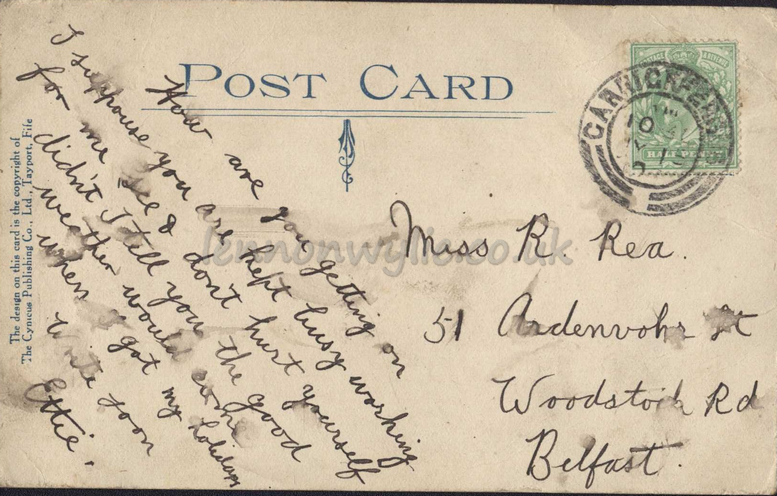 POST CARD
The design on this card is the copyright of
The Cynicus Publishing Co., Ltd., Tayport, Fife
How are you getting on
I suppouse you are kept busy working
for me see & don't hurt yourself
didn't I tell you the good
weather would come
when I got my holidays
Write soon
Ettie.
CARRICKFERGUS
HALFPENNY
Miss R. Rea.
51 Ardenvohr St
Woodstock Rd
Belfast.
lennonwylie.co.uk